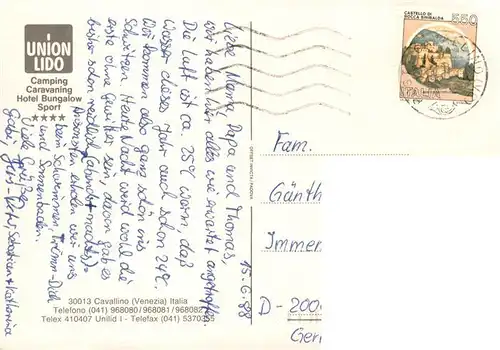 UNION
LIDO
Camping
Caravaning
Hotel Bungalow
Sport
★★★★
15.6.88
Liebe Mama, Papa und Thomas,
wir haben hier alles wie erwartet angetroffen.
Die Luft ist ca. 25°C warm, das
Wasser dieses Jahr auch schon 24°C.
Wir kommen also ganz schön ins
Schwitzen. Heute Nacht wird wohl die
erste ohne Gewitter sein, davon gab es
bisher schon reichlich
Ansonsten erholen wir uns
beim Schwimmen, Trimm-Dich
und Sonnenbaden.
Viele Grüße
Sebastian + Katharina
30013 Cavallino (Venezia) Italia
Telefono (041) 968080 / 968081 / 968082
Telex 410407 Unilid I - Telefax (041) 5370355
CASTELLO DI
ROCCA SINIBALDA
550
Fam.
Günth
Immen
D-200
Ger